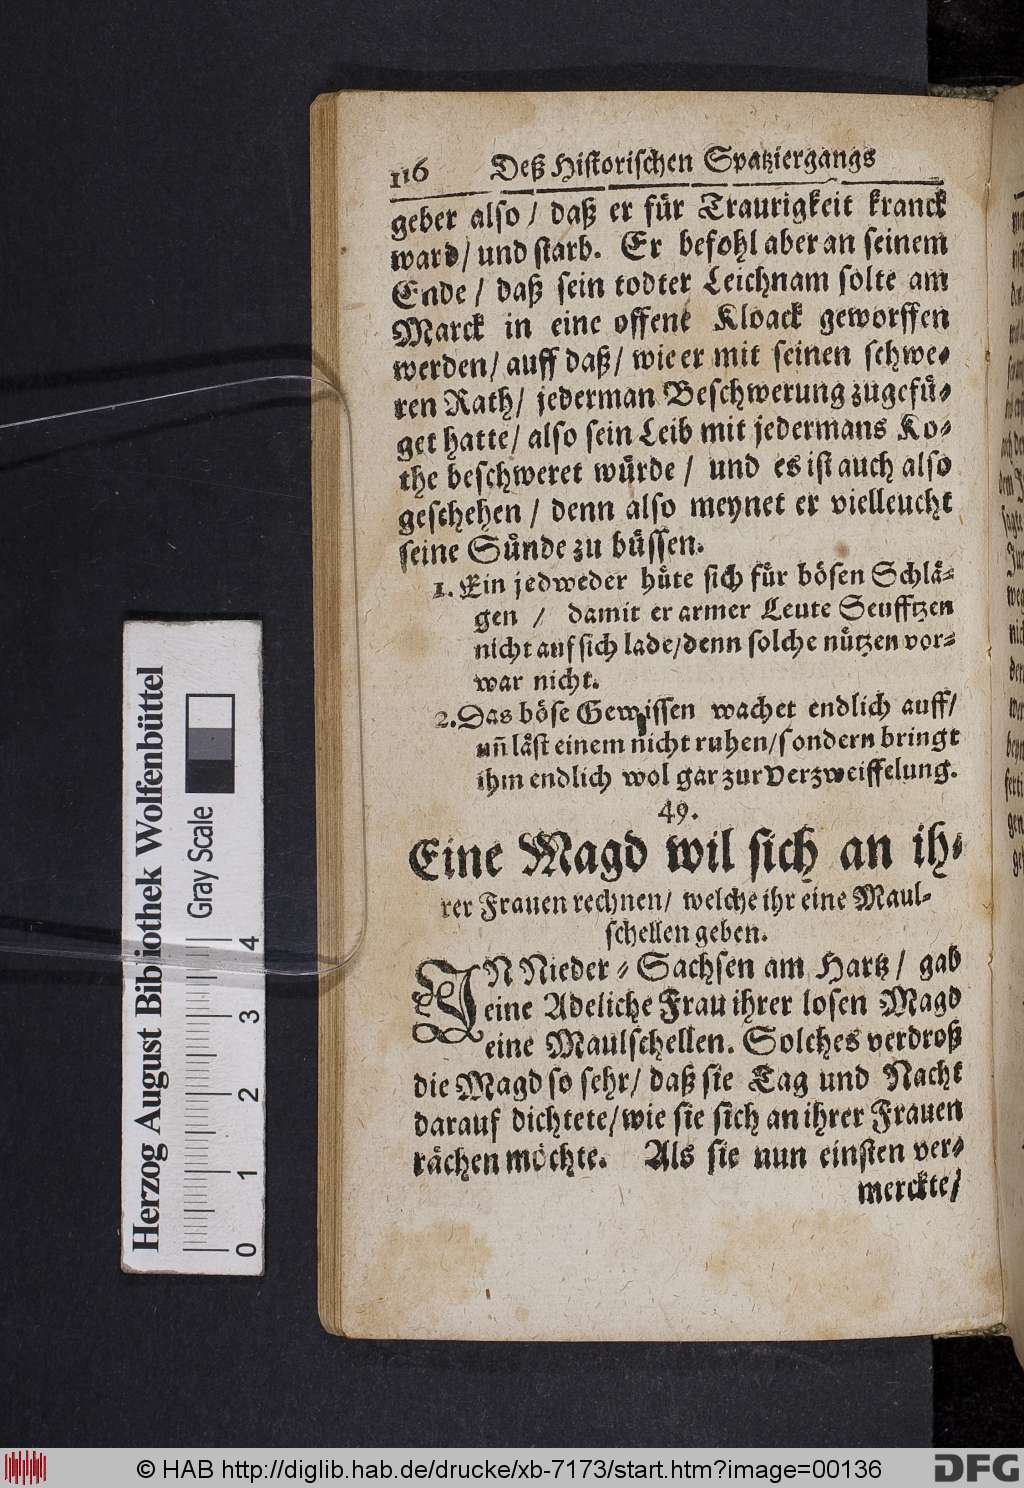 116 Deß Historischen Spatziergangs
geber also / daß er für Traurigkeit kranck
ward / und starb. Er befohl aber an seinem
Ende / daß sein todter Leichnam solte am
Marck in eine offene Kloack geworffen
werden / auff daß / wie er mit seinen schwe-
ren Rath / jederman Beschwerung zugefü-
get hatte / also sein Leib mit jedermans Ko-
the beschweret würde / und es ist auch also
geschehen / denn also meynet er vielleucht
seine Sünde zu büssen.
1. Ein jedweder hüte sich für bösen Schlä-
gen / damit er armer Leute Seufftzen
nicht auf sich lade / denn solche nützen vor-
war nicht.
2. Das böse Gewissen wachet endlich auff /
uñ läst einem nicht ruhen / sondern bringt
ihm endlich wol gar zur Verzweiffelung.
49.
Eine Magd wil sich an ih-
rer Frauen rechnen / welche ihr eine Maul-
schellen geben.
IN Nieder-Sachsen am Hartz / gab
eine Adeliche Frau ihrer losen Magd
eine Maulschellen. Solches verdroß
die Magd so sehr / daß sie Tag und Nacht
darauf dichtete / wie sie sich an ihrer Frauen
rächen möchte. Als sie nun einsten ver-
merckte /
Herzog August Bibliothek Wolfenbüttel
Gray Scale
0 1 2 3 4
© HAB http://diglib.hab.de/drucke/xb-7173/start.htm?image=00136
DFG